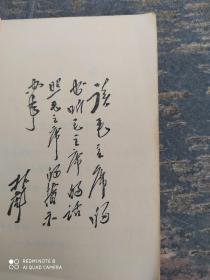 读毛主席的
书听毛主席的话
照毛主席的指示
办事
林彪
REDMI NOTE 8
AI QUAD CAMERA